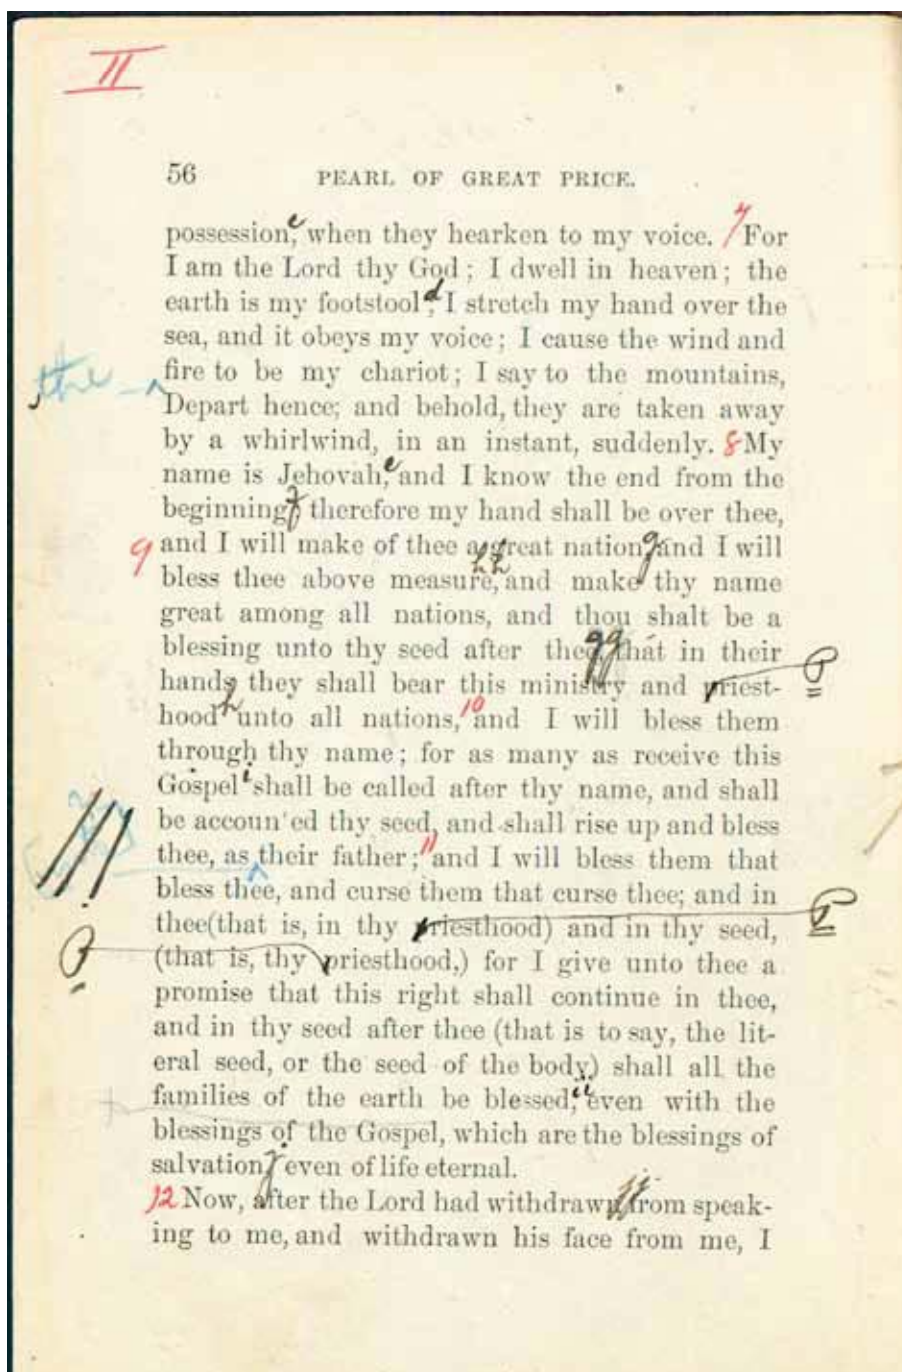 II
56 PEARL OF GREAT PRICE.
possession,c when they hearken to my voice. 7 For
I am the Lord thy God; I dwell in heaven; the
earth is my footstool;d I stretch my hand over the
sea, and it obeys my voice; I cause the wind and
the
fire to be my chariot; I say to the mountains,
Depart hence; and behold, they are taken away
by a whirlwind, in an instant, suddenly. 8 My
name is Jehovah,e and I know the end from the
beginning;f therefore my hand shall be over thee,
9 and I will make of thee a great nation,g and I will
bless thee above measure,hh and make thy name
great among all nations, and thou shalt be a
blessing unto thy seed after thee,gg that in their
hands they shall bear this ministry and priest-
P
hoodh unto all nations, 10 and I will bless them
through thy name; for as many as receive this
Gospeli shall be called after thy name, and shall
be accoun'ed thy seed, and shall rise up and bless
thee, as their father; 11 and I will bless them that
bless thee, and curse them that curse thee; and in
thee(that is, in thy priesthood) and in thy seed,
P
P
(that is, thy priesthood,) for I give unto thee a
promise that this right shall continue in thee,
and in thy seed after thee (that is to say, the lit-
eral seed, or the seed of the body) shall all the
families of the earth be blessed,ii even with the
blessings of the Gospel, which are the blessings of
salvation,j even of life eternal.
12 Now, after the Lord had withdrawnjj from speak-
ing to me, and withdrawn his face from me, I